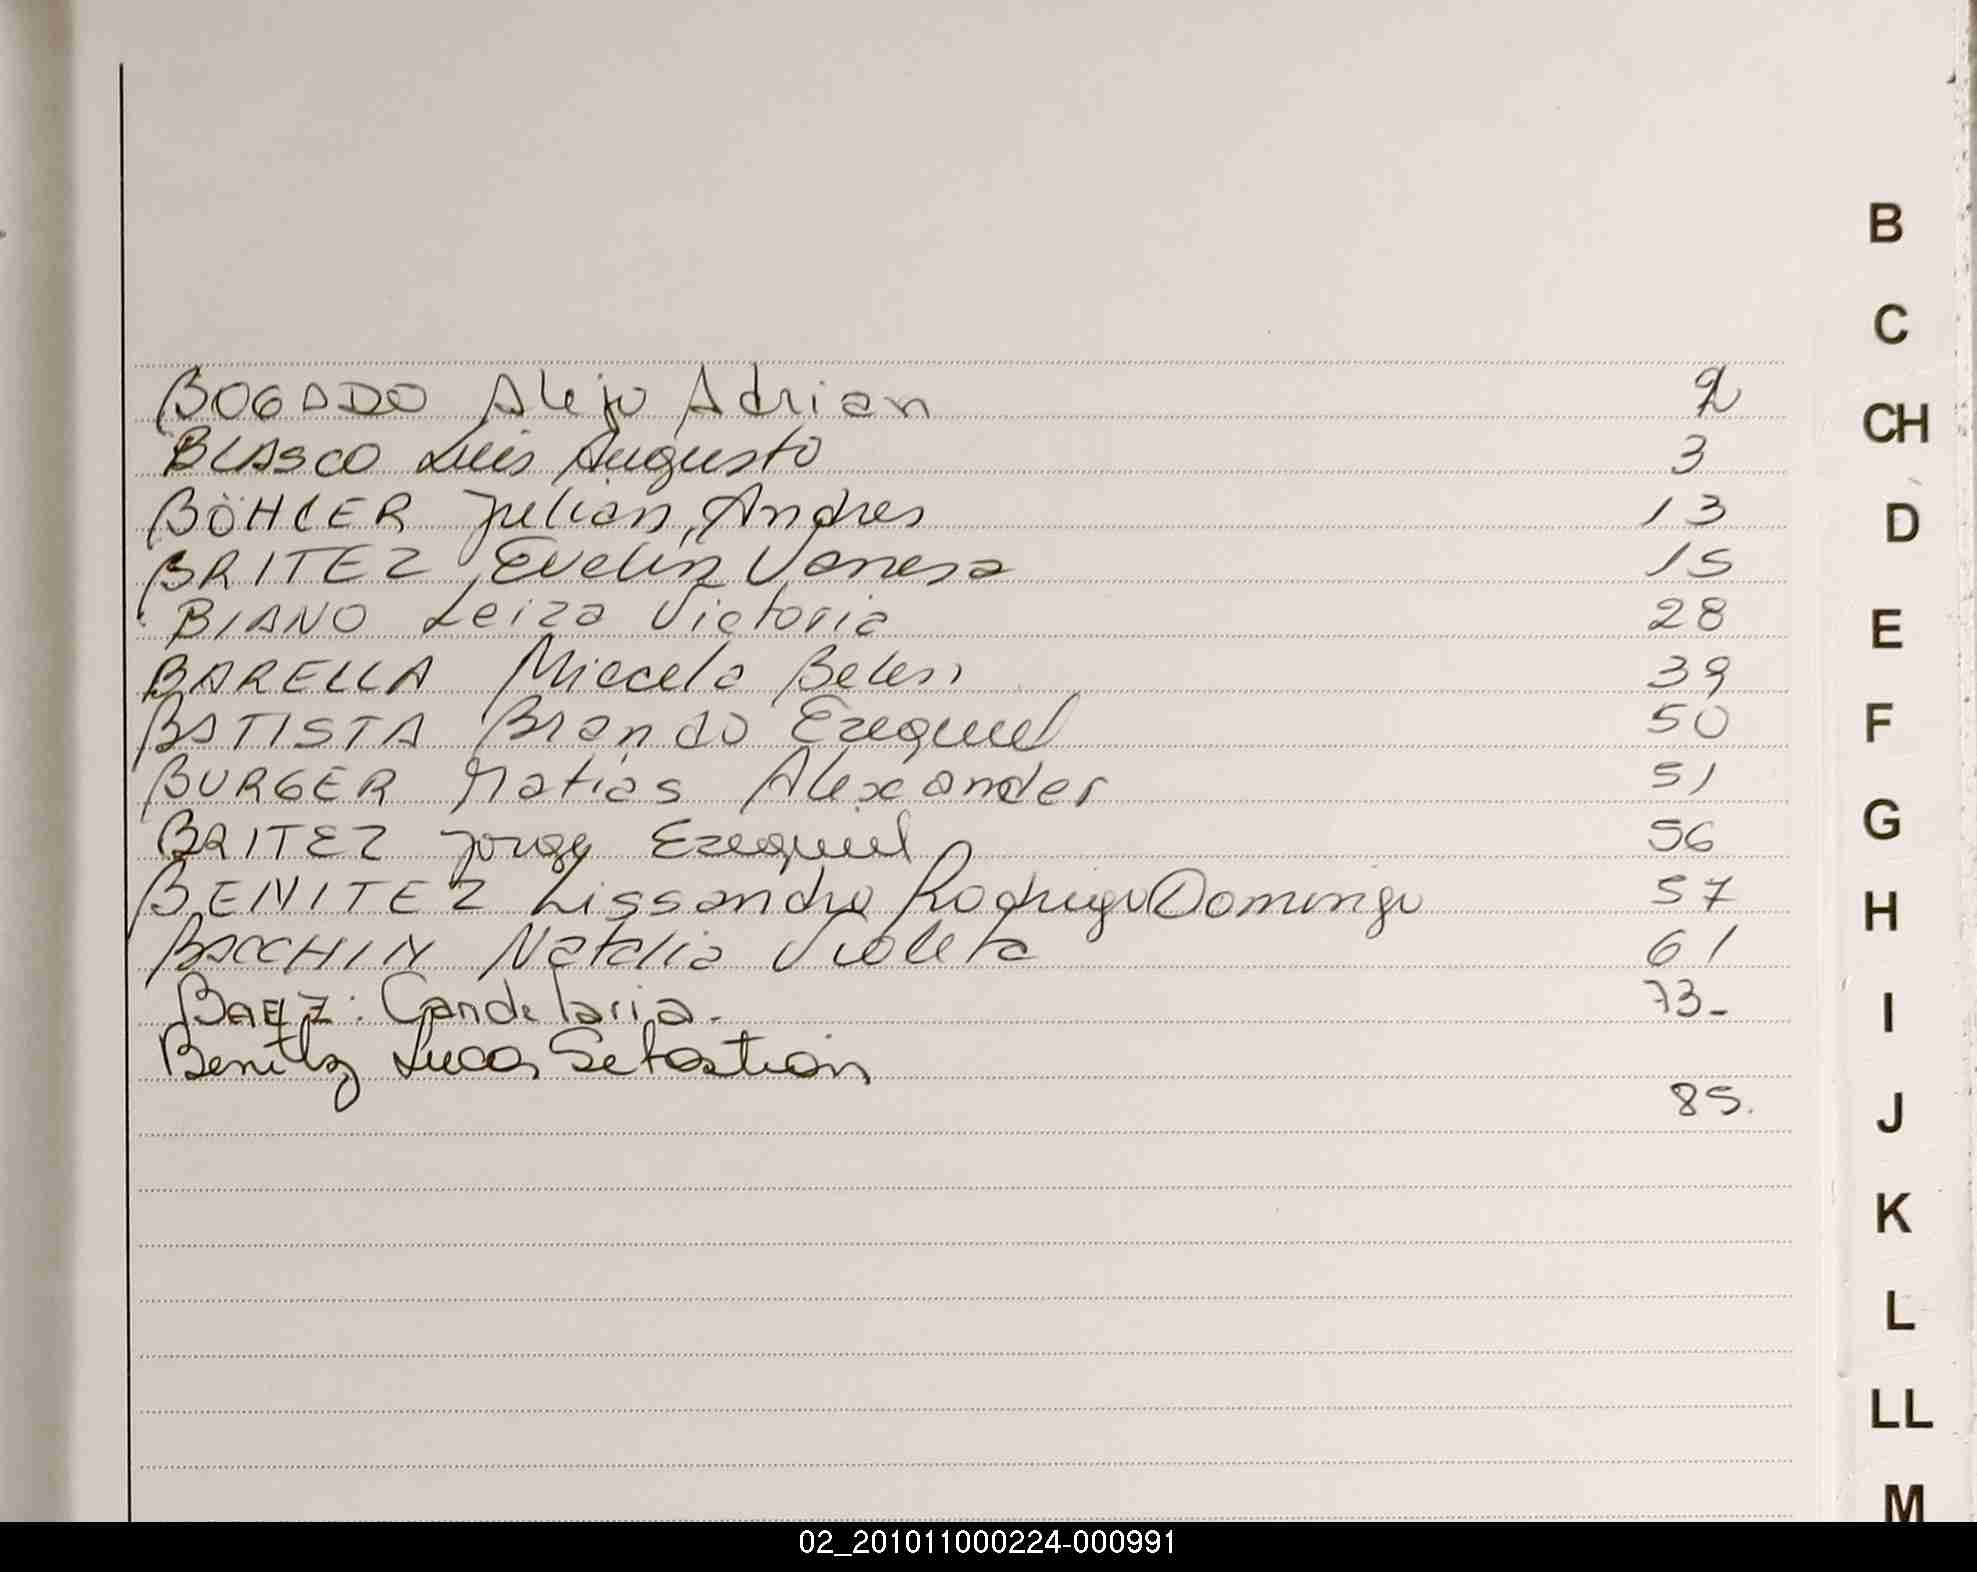 BOGADO Alejo Adrian 2
BLASCO Luis Augusto 3
BÖHLER Julian Andres 13
BRITEZ Evelin Vanesa 15
BIANO Leiza Victoria 28
BARELLA Micaela Belen 39
BATISTA Brando Ezequiel 50
BURGER Matias Alexander 51
BRITEZ Jorge Ezequiel 56
BENITEZ Lissandro Rodrigo Domingo 57
BACCHIN Natalia Violeta 61
BAEZ: Candelaria. 73-
Benitez Lucas Sebastian
85.
B
C
CH
D
E
F
G
H
I
J
K
L
LL
M
02_201011000224-000991